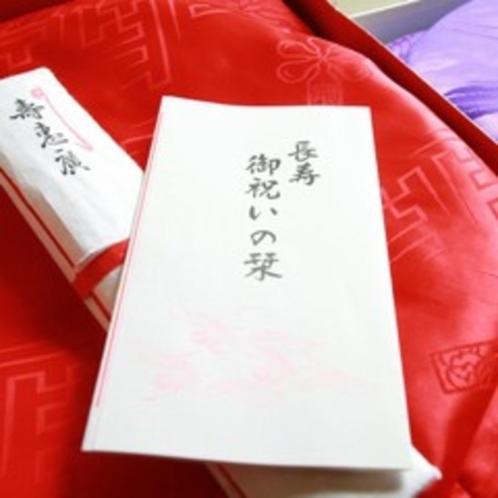 長寿
御祝いの栞
寿恵廣